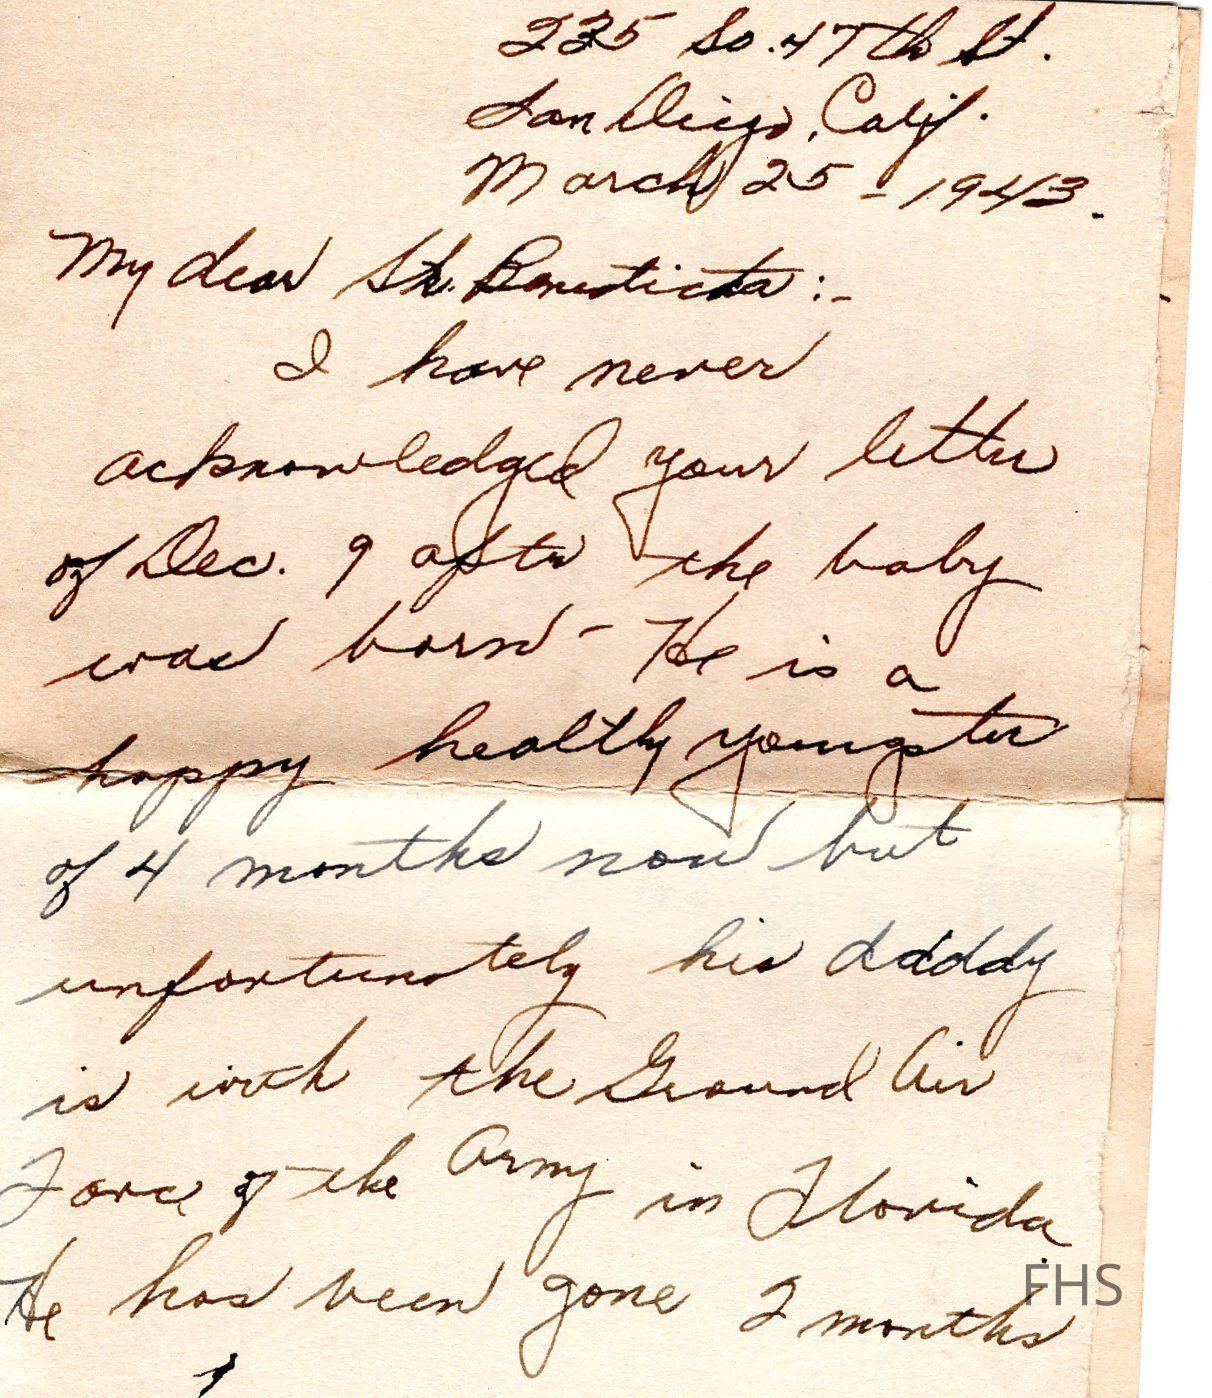 235 So. 47th St.
San Diego, Calif.
March 25 - 1943.
My dear Sr. Benedicta :-
I have never
acknowledged your letter
of Dec. 9 after the baby
was born - He is a
happy healthy youngster
of 4 months now but
unfortunately his daddy
is with the Ground Air
Force of the Army in Florida.
He has been gone 2 months
FHS